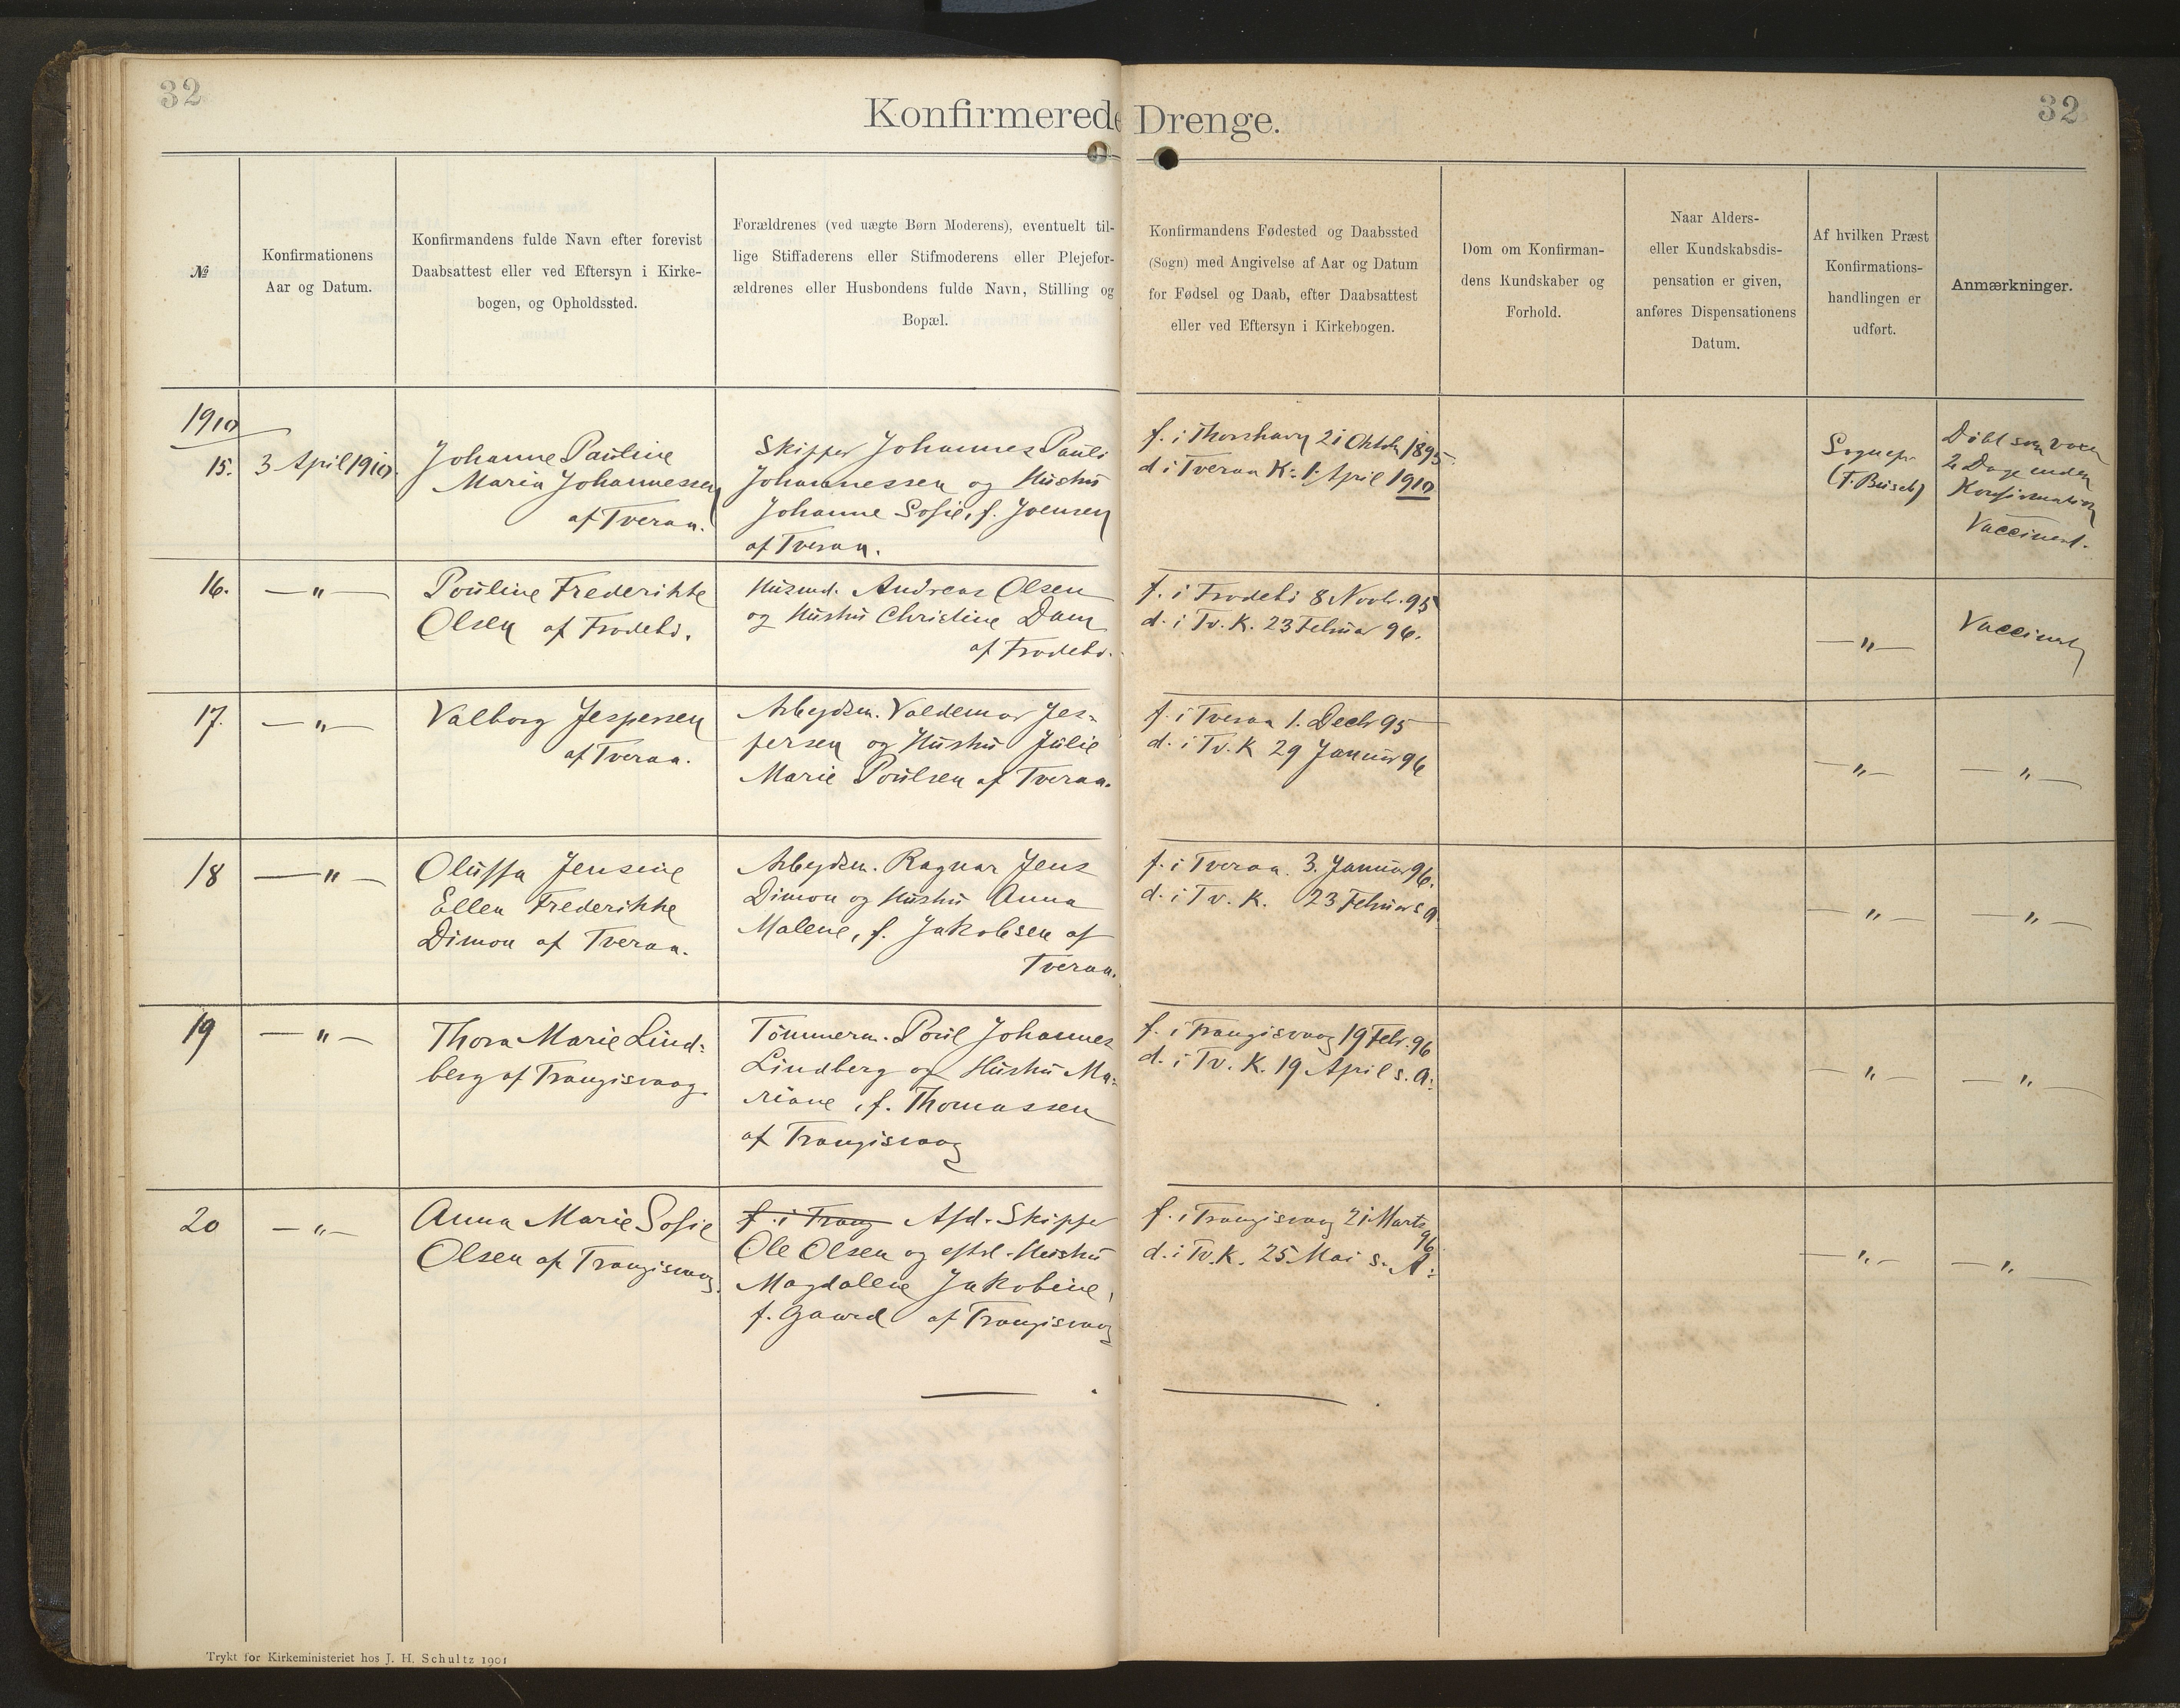 32
32
Konfirmerede Drenge.
№
Konfirmationens
Aar og Datum.
Konfirmandens fulde Navn efter forevist
Daabsattest eller ved Eftersyn i Kirke-
bogen, og Opholdssted.
Forældrenes (ved uægte Børn Moderens), eventuelt til-
lige Stiffaderens eller Stifmoderens eller Plejefor-
ældrenes eller Husbondens fulde Navn, Stilling og
Bopæl.
Konfirmandens Fødested og Daabssted
(Sogn) med Angivelse af Aar og Datum
for Fødsel og Daab, efter Daabsattest
eller ved Eftersyn i Kirkebogen.
Dom om Konfirman-
dens Kundskaber og
Forhold.
Naar Alders-
eller Kundskabsdis-
pensation er given,
anføres Dispensationens
Datum.
Af hvilken Præst
Konfirmations-
handlingen er
udført.
Anmærkninger.
1910
15.
3 April 1910.
Johanne Pauline
Maria Johannessen
af Tveraa.
Skipper Johannes Pauli
Johannessen og Hustru
Johanne Sofie, f. Joensen
af Tveraa.
f. i Thorshavn 21 Oktob 1895.
d i Tveraa K: 1. April 1910
Sognepr.
(F. Busch)
Døbt som voxen
2 Dage inden
Konfirmation
Vaccineret.
16.
— " —
Pouline Frederikke
Olsen af Frodebø.
Husmd. Andreas Olsen
og Hustru Christine Dam
af Frodebø.
f. i Frodebø 8 Novbr. 95
d. i Tv. K. 23 Februar 96.
— " —
Vaccineret
17.
— " —
Valborg Jespersen
af Tveraa.
Arbejdsm. Valdemar Jes-
persen og Hustru Julie
Marie Poulsen af Tveraa.
f. i Tveraa 1. Decbr 95
d. i Tv. K 29 Januar 96
— " —
— " —
18
— " —
Olussa Jensine
Ellen Frederikke
Dimon af Tveraa.
Arbejdsm. Ragnar Jens
Dimon og Hustru Anna
Malene, f. Jakobsen af
Tveraa.
f. i Tveraa. 3. Januar 96.
d. i Tv. K. 23 Februar s A
— " —
— " —
19
— " —
Thora Marie Lind-
berg af Trangisvaag.
Tömmerm. Poul Johannes
Lindberg og Hustru Ma-
riane, f. Thomassen
af Trangisvaag
f. i Trangisvaag 19 Febr. 96
d. i Tv. K. 19 April s. A:
— " —
— " —
20
— " —
Anna Marie Sofie
Olsen af Trangisvaag.
f. i Trang Afd. Skipper
Ole Olsen og eftrl. Hustru
Magdalene Jakobine,
f. Gaard af Trangisvaag
f. i Trangisvaag 21 Marts
96.
d. i Tv. K. 25 Mai s. A:
— " —
— " —
Trykt for Kirkeministeriet hos J. H. Schultz 1901